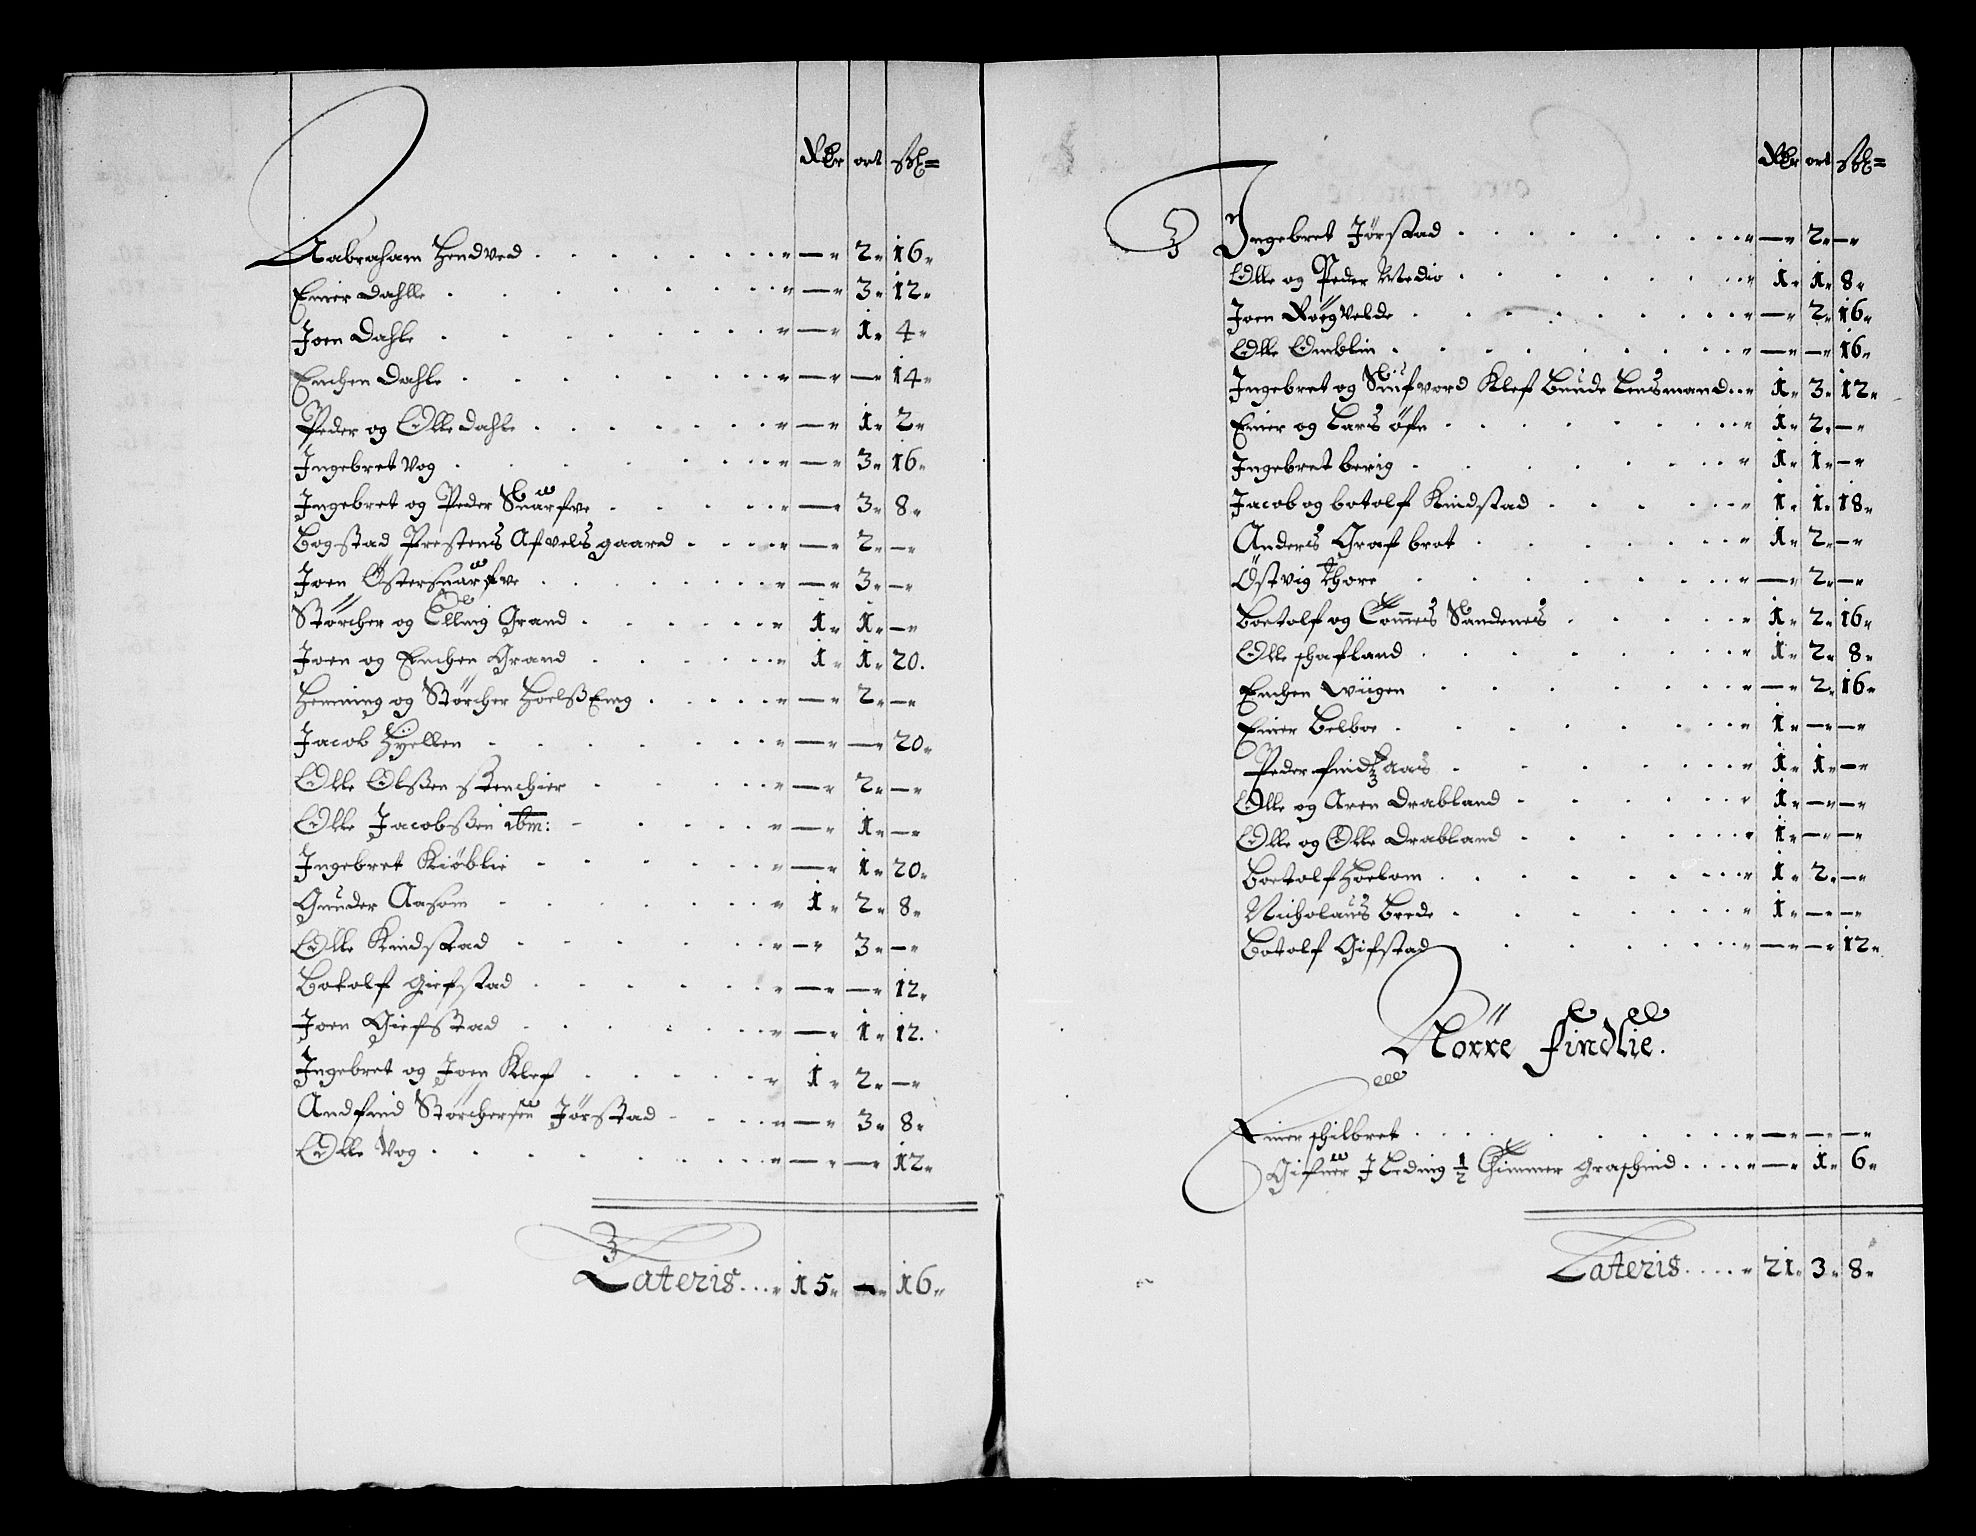 Rdr ort sk=
Aabraham Hendved . . . . . . . „ — „ 2 „ 16 „
Einer Dahlle . . . . . . . „ — „ 3 „ 12 „
Joen Dahle . . . . . . . „ — „ 1 „ 4 „
Erichen Dahle . . . . . . . „ — „ — „ 14 „
Peder og Olle Dahle . . . . . . . „ — „ 1 „ 2 „
Ingebret Vog . . . . . . . „ — „ 3 „ 16 „
Ingebret og Peder Snarfve . . . . . „ — „ 3 „ 8 „
Bogstad Prestens Afvels gaard . . . . „ — „ 2 „ — „
Joen Östersnarfve . . . . . . „ — „ 3 „ — „
Störcher og Elling Grand . . . . . . „ 1 „ 1 „ — „
Joen og Erichen Grand . . . . . „ 1 „ 1 „ 20.
Henning og Störcher HoelsEing . . . . „ — „ 2 „ — „
Jacob Hyellen . . . . . . . „ — „ — „ 20 „
Olle Olßen stenchier . . . . . „ — „ 2 „ — „
Olle Jacobßen ibm: . . . . . „ — „ 1 „ — „
Ingebret Kiøblie . . . . . . „ — „ 1 „ 20 „
Gunder Aasom . . . . . . „ 1 „ 2 „ 8 „
Olle Kindstad . . . . . . „ — „ 3 „ — „
Botolf Giefstad . . . . . . „ — „ — „ 12 „
Joen Giefstad . . . . . . „ — „ 1 „ 12.
Ingebret og Joen Klef . . . . . „ 1 „ 2 „ — „
Andfind Störchersen Jørstad . . . . „ — „ 3 „ 8 „
Olle Vog . . . . . . . . „ — „ — „ 12 „
Lateris . . . „ 15 „ — „ 16 „
Rdr ort sk=
Ingebret Jørstad . . . . . . . . „ — „ 2 „ — „
Olle og Peder Medio . . . . . . „ 1 „ 1 „ 8 „
Joen Röegvelde . . . . . . . „ — „ 2 „ 16 „
Olle Omblin . . . . . . . „ — „ — „ 16 „
Ingebret og Klef Bunde Lensmand . . „ 1 „ 3 „ 12 „
Einer og Lars øfr . . . . . . . „ 1 „ 2 „ — „
Ingebret berig . . . . . . . „ 1 „ 1 „ — „
Jacob og botolf Kindstad . . . . . „ 1 „ 1 „ 18 „
Anders Graf brot . . . . . . „ 1 „ 2 „ — „
Östvig Thore . . . . . . . „ — „ 2 „ — „
Boetolf og Tommes Sandenes . . . . . „ 1 „ 2 „ 16 „
Olle schafland . . . . . . . „ 1 „ 2 „ 8 „
Erichen Wiigen . . . . . . . „ — „ 2 „ 16 „
Einer Belboe . . . . . . . „ 1 „ — „ — „
Peder findsaas . . . . . . . „ 1 „ 1 „ — „
Olle og Aren Drabland . . . . . „ 1 „ — „ — „
Olle og Olle Drabland . . . . . „ 1 „ — „ — „
Boetolf Hoelom . . . . . . . „ 1 „ 2 „ — „
Nicholaus Brede . . . . . . . „ 1 „ — „ — „
Botolf Gifstad . . . . . . „ — „ — „ 12 „
Nörre findlie.
Einer schilbret . . . . . . . . „ — „ — „ — „
Gifuer I Leding ½ Gimmer graschind . . . . „ — „ 1 „ 6 „
Lateris . . . . „ 21 „ 3 „ 8 „